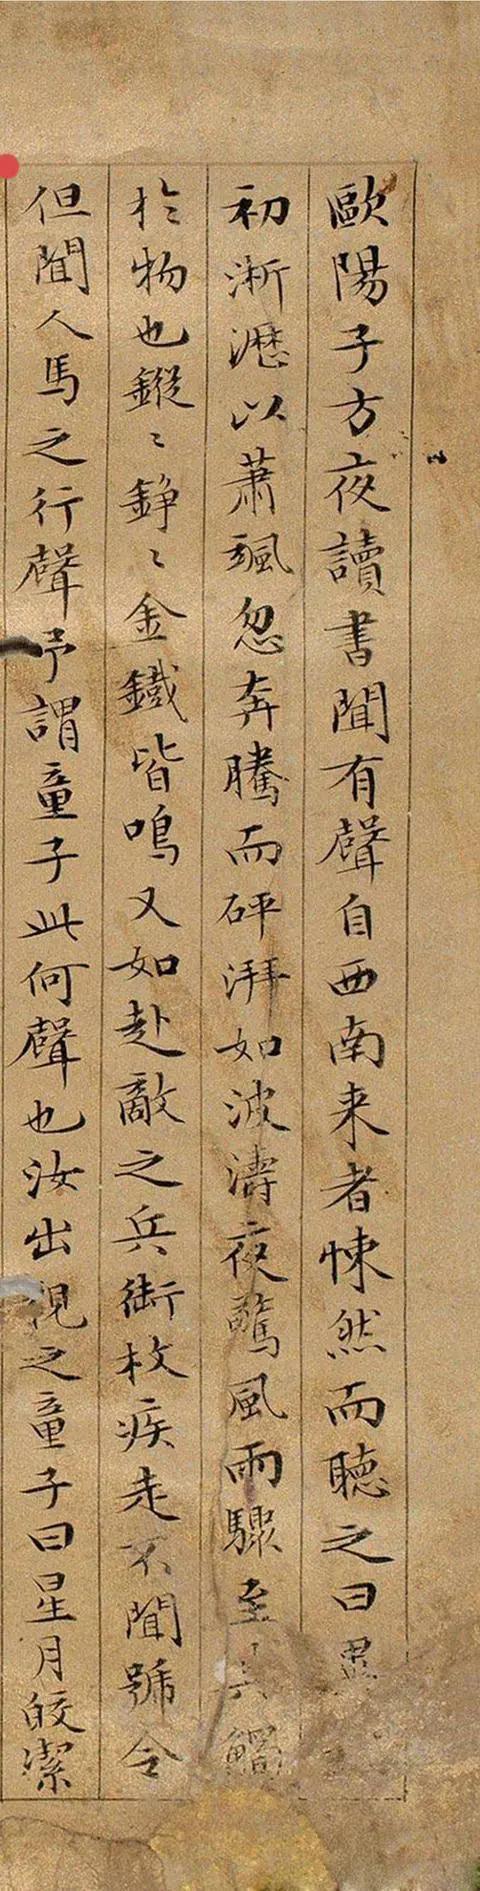 歐陽子方夜讀書聞有聲自西南来者悚然而聴之曰異
初淅瀝以蕭颯忽奔騰而砰湃如波濤夜驚風雨驟至其觸
扵物也鏦〻錚〻金鐵皆鳴又如赴敵之兵銜枚疾走不聞號令
但聞人馬之行聲予謂童子此何聲也汝出視之童子曰星月皎潔